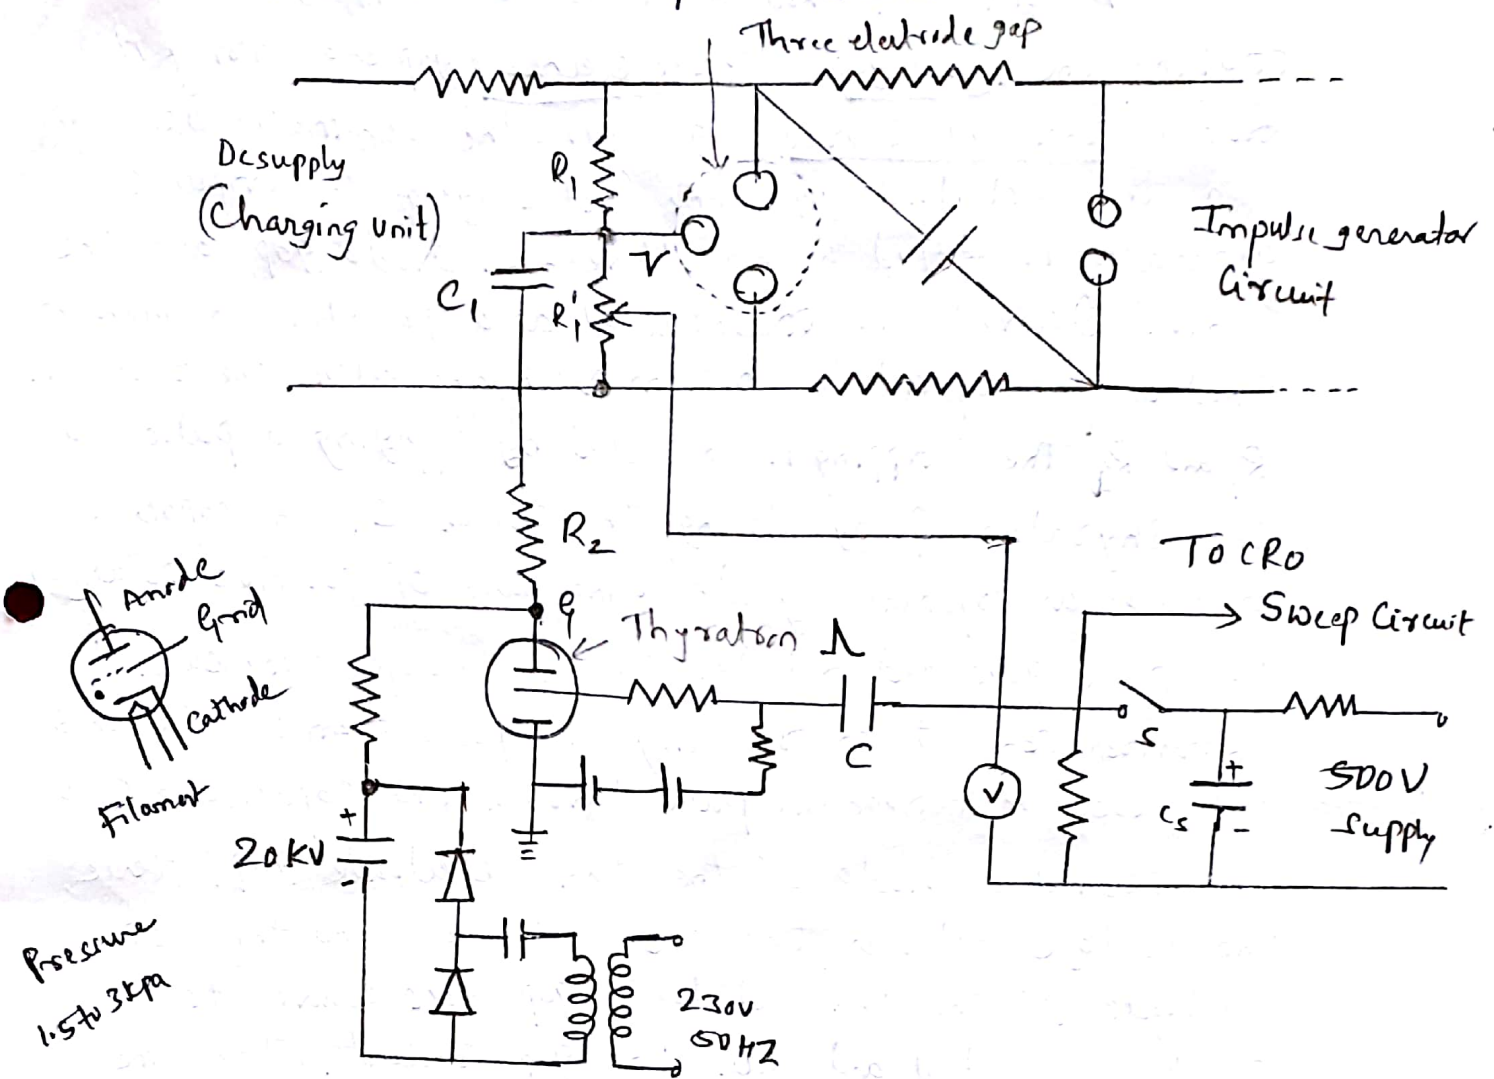 Three electrode gap
Dc supply
(Charging unit)
R1
V
C1
R1'
Impulse generator
Circuit
R2
To CRO
Sweep Circuit
Anode
Grid
Cathode
Filament
G
Thyratron
C
S
500V
Supply
Cs
+
-
V
+
20KV
-
Pressure
1.5 to 3kpa
230V
50HZ